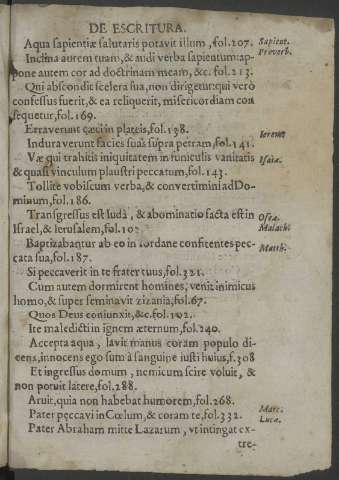 DE ESCRITURA.
Aqua sapientiæ salutaris potavit illum, fol.207. Sapient.
Inclina aurem tuam, & audi verba sapientum: ap- Proverb.
pone autem cor ad doctrinam meam, &c. fol.213.
Qui abscondit scelera sua, non dirigetur: qui verò
confessus fuerit, & ea reliquerit, misericordiam con
sequetur, fol.169.
Erraverunt cæci in plateis, fol.138. Ierem.
Induraverunt facies suas supra petram, fol.141.
Væ qui trahitis iniquitatem in funiculis vanitatis Isaiæ.
& quasi vinculum plaustri peccatum, fol.143.
Tollite vobiscum verba, & convertimini ad Do-
minum, fol.186.
Transgressus est Iudà, & abominatio facta est in Oseæ.
Israel, & Ierusalem, fol.10 Malach.
Baptizabantur ab eo in Iordane confitentes pec- Matth.
cata sua, fol.187.
Si peccaverit in te frater tuus, fol.321.
Cum autem dormirent homines, venit inimicus
homo, & super seminavit zizania, fol.67.
Quos Deus coniunxit, &c. fol.102.
Ite maledicti in ignem æternum, fol.240.
Accepta aqua, lavit manus coram populo di-
cens, innocens ego sum à sanguine iusti huius, f.308
Et ingressus domum, neminem scire voluit, &
non potuit latere, fol.288.
Aruit, quia non habebat humorem, fol.268.
Pater peccavi in Cœlum, & coram te, fol.332. Marc.
Pater Abraham mitte Lazarum, ut intingat ex- Lucæ.
tre-